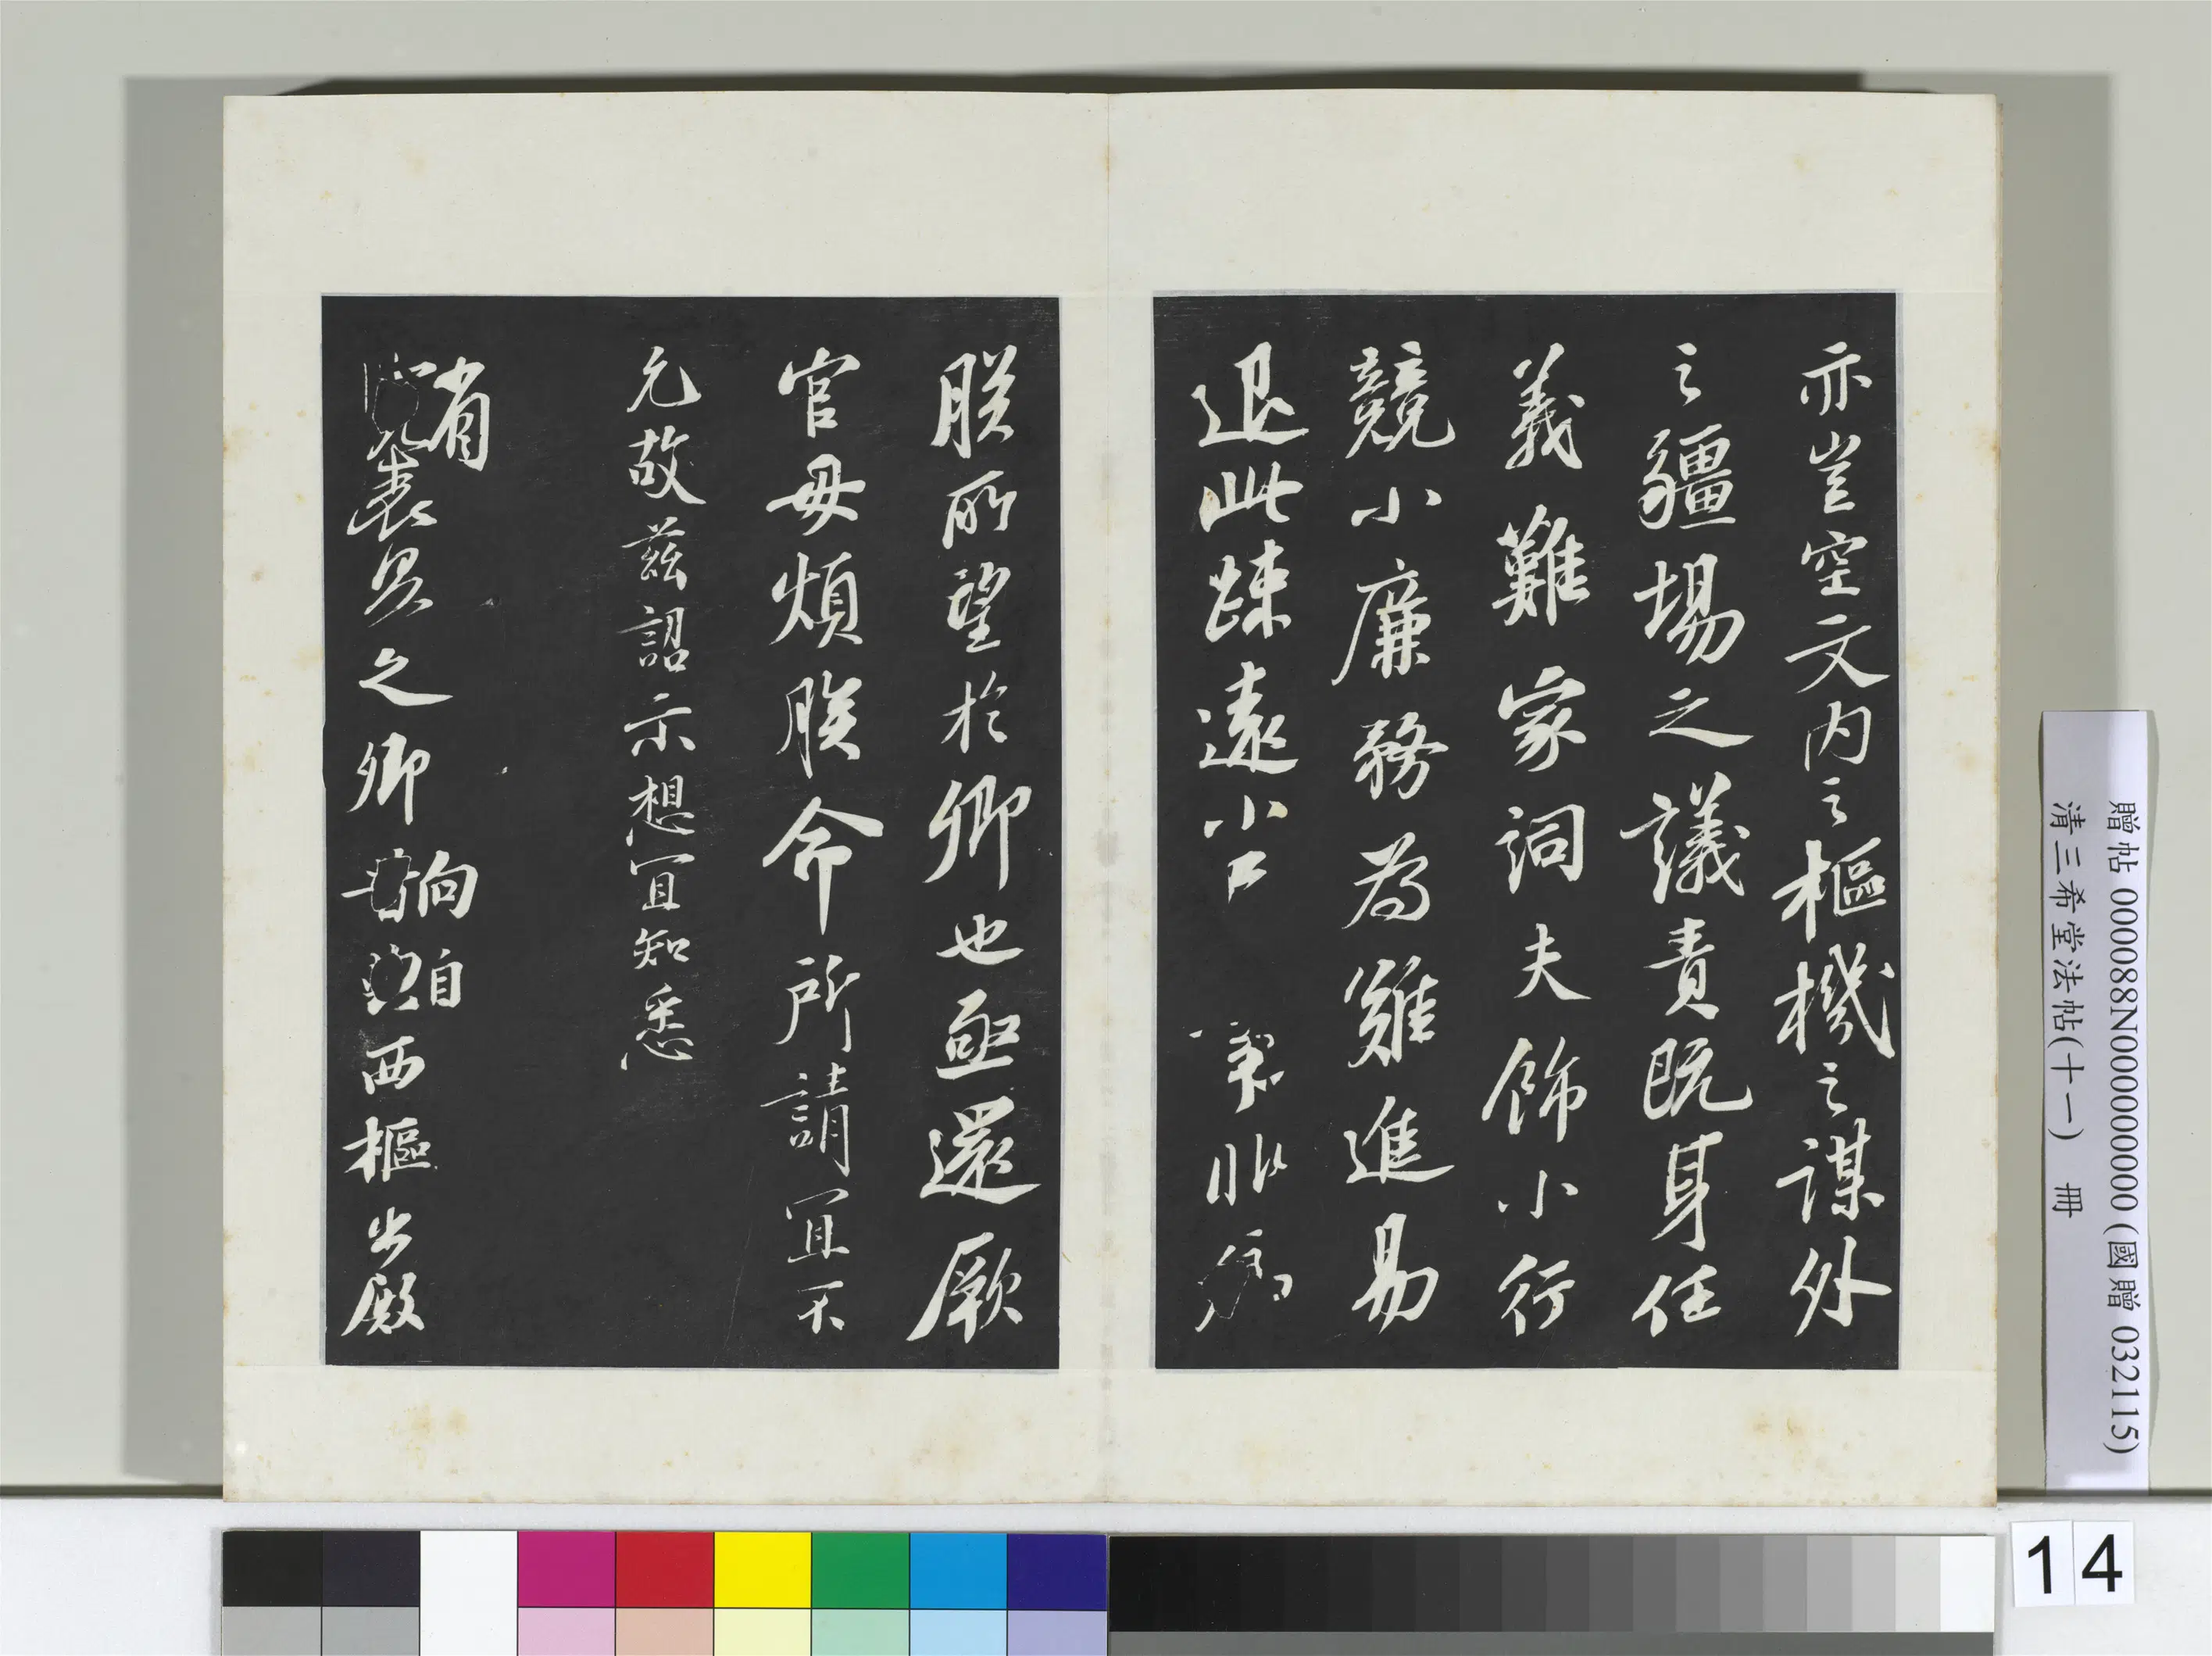 亦豈空文内之樞機之謀外
之疆埸之議責既身任
義難家詞夫飾小行
競小廉務為難進易
退此疎遠小
朕所望於卿也亟還厥
官毋煩朕命所請宜不
允故茲詔示想宜知悉
省
表具之卿
向自
西樞出殿
贈帖 000088N000000000 (國贈 032115)
清三希堂法帖(十一) 冊
14